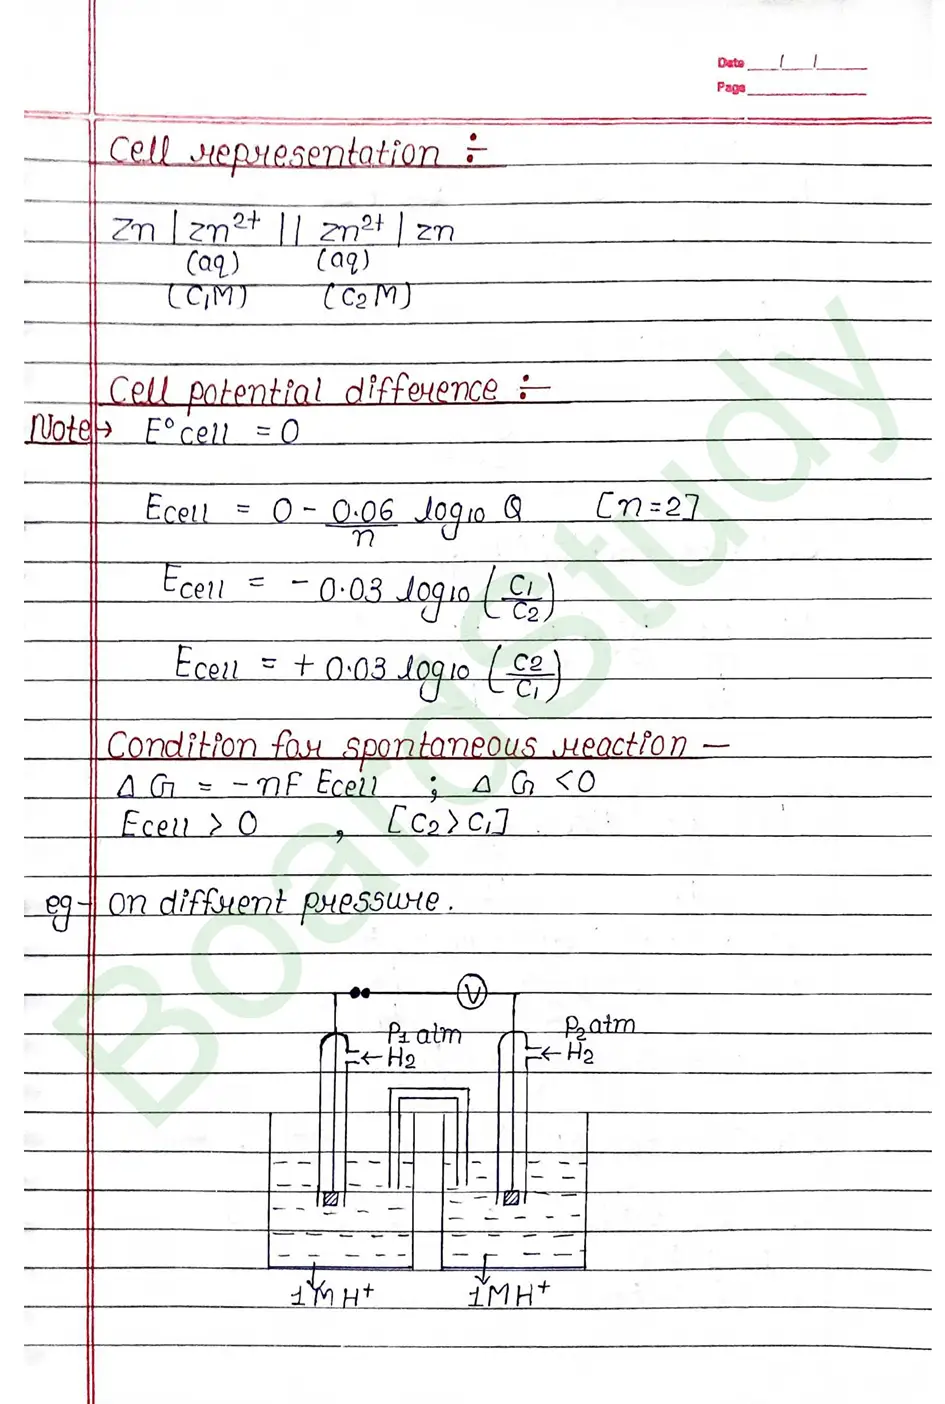 Date / /
Page
Cell representation ÷
Zn | Zn²⁺ || Zn²⁺ | Zn
(aq) (aq)
(C₁M) (C₂M)
Cell potential difference ÷
Note → E°cell = 0
Ecell = 0 - 0.06/n log₁₀ Q [n=2]
Ecell = - 0.03 log₁₀ (C₁/C₂)
Ecell = + 0.03 log₁₀ (C₂/C₁)
Condition for spontaneous reaction —
Δ G = - nF Ecell ; Δ G < 0
Ecell > 0 , [C₂ > C₁]
eg - on diffrent pressure.
V
P₁ atm P₂ atm
← H₂ ← H₂
1M H⁺ 1M H⁺
Boardstudy